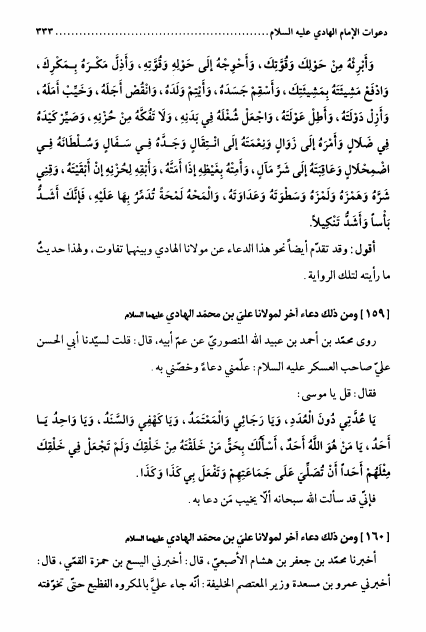 دعوات الإمام الهادي عليه السلام ........................................................ ٣٣٣
وَأَبْرِئْهُ مِنْ حَوْلِكَ وَقُوَّتِكَ، وَأَحْوِجْهُ إِلَى حَوْلِهِ وَقُوَّتِهِ، وَأَذِلَّ مَكْرَهُ بِمَكْرِكَ،
وَادْفَعْ مَشِيئَتَهُ بِمَشِيئَتِكَ، وَأَسْقِمْ جَسَدَهُ، وَأَيْتِمْ وَلَدَهُ، وَانْقُصْ أَجَلَهُ، وَخَيِّبْ أَمَلَهُ،
وَأَزِلْ دَوْلَتَهُ، وَأَطِلْ عَوْلَتَهُ، وَاجْعَلْ شُغْلَهُ فِي بَدَنِهِ، وَلَا تَفُكَّهُ مِنْ حُزْنِهِ، وَصَيِّرْ كَيْدَهُ
فِي ضَلَالٍ وَأَمْرَهُ إِلَى زَوَالٍ وَنِعْمَتَهُ إِلَى انْتِقَالٍ وَجَدَّهُ فِي سَفَالٍ وَسُلْطَانَهُ فِي
اضْمِحْلَالٍ وَعَاقِبَتَهُ إِلَى شَرِّ مَآلٍ، وَأَمِتْهُ بِغَيْظِهِ إِذَا أَمَتَّهُ، وَأَبْقِهِ لِحُزْنِهِ إِنْ أَبْقَيْتَهُ، وَقِنِي
شَرَّهُ وَهَمْزَهُ وَلَمْزَهُ وَسَطْوَتَهُ وَعَدَاوَتَهُ، وَالْمَحْهُ لَمْحَةً تُدَمِّرُ بِهَا عَلَيْهِ، فَإِنَّكَ أَشَدُّ
بَأْساً وَأَشَدُّ تَنْكِيلاً.
أقول: وقد تقدّم أيضاً نحو هذا الدعاء عن مولانا الهادي وبينهما تفاوت، ولهذا حديثٌ
ما رأيته لتلك الرواية.
[١٥٩] ومن ذلك دعاء آخر لمولانا علي بن محمّد الهادي عليهما السلام
روى محمّد بن أحمد بن عبيد الله المنصوريّ عن عمّ أبيه، قال: قلت لسيّدنا أبي الحسن
عليّ صاحب العسكر عليه السلام: علّمني دعاءً وخصّني به.
فقال: قل يا موسى:
يَا عُدَّتِي دُونَ الْعُدَدِ، وَيَا رَجَائِي وَالْمُعْتَمَدُ، وَيَا كَهْفِي وَالسَّنَدُ، وَيَا وَاحِدُ يَا
أَحَدُ، يَا مَنْ هُوَ اللهُ أَحَدٌ، أَسْأَلُكَ بِحَقِّ مَنْ خَلَقْتَهُ مِنْ خَلْقِكَ وَلَمْ تَجْعَلْ فِي خَلْقِكَ
مِثْلَهُمْ أَحَداً أَنْ تُصَلِّيَ عَلَى جَمَاعَتِهِمْ وَتَفْعَلَ بِي كَذَا وَكَذَا.
فإنّي قد سألت الله سبحانه ألّا يخيب مَن دعا به.
[١٦٠] ومن ذلك دعاء آخر لمولانا علي بن محمّد الهادي عليهما السلام
أخبرنا محمّد بن جعفر بن هشام الأصبغيّ، قال: أخبرني اليسع بن حمزة القمّي، قال:
أخبرني عمرو بن مسعدة وزير المعتصم الخليفة: أنّه جاء عليَّ بالمكروه الفظيع حتّى تخوّفته